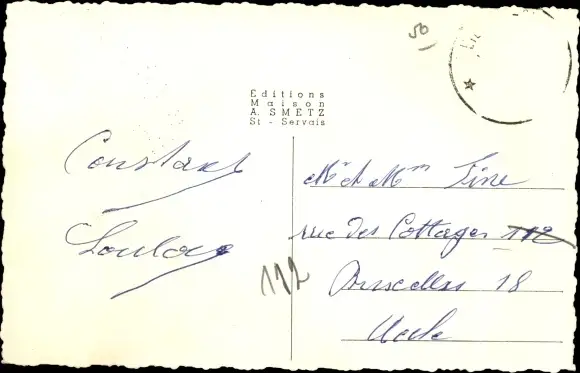 50
Editions
Maison
A. SMETZ
St - Servais
Constant
Loulou
Mr et Mme Fine
rue des Cottages 112
112
Bruxelles 18
Uccle